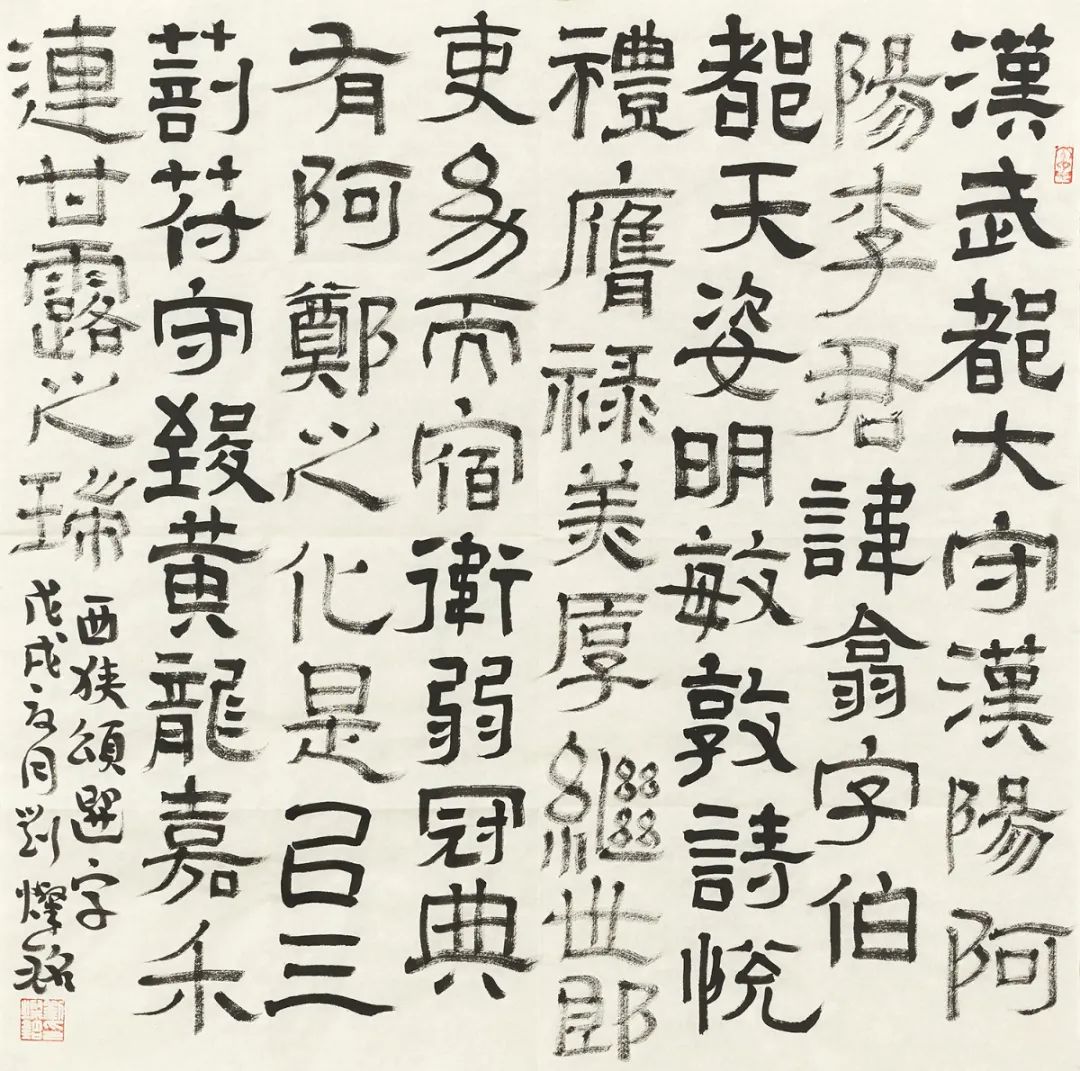 漢武都大守漢陽阿
陽李君諱翕字伯
都天姿明敏敦詩悅
禮膺禄美厚繼世郎
吏幼而宿衛弱冠典
有阿鄭之化是㠯三
剖苻守致黃龍嘉禾
連甘露之瑞
西狭頌選字
戊戌夏月劉燦銘